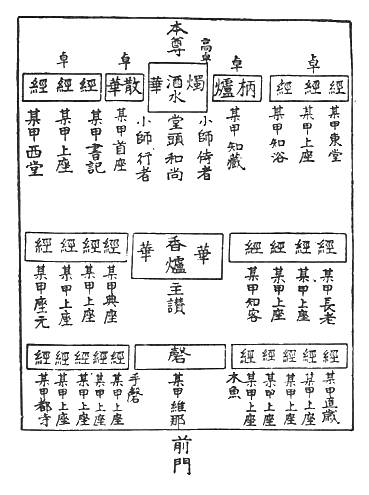 本尊
高卓
卓
卓
卓
卓
經 經 經
柄爐
燭
酒水
華
散華
經 經 經
某甲東堂
某甲上座
某甲知浴
某甲知藏
小師侍者
堂頭和尚
小師行者
某甲首座
某甲書記
某甲上座
某甲西堂
經 經 經 經
華
香爐
華
經 經 經 經
某甲長老
某甲上座
某甲上座
某甲知客
主讃
某甲典座
某甲上座
某甲上座
某甲座元
經 經 經 經 經
磬
經 經 經 經 經
某甲直歳
某甲上座
某甲上座
某甲上座
某甲上座
木魚
某甲維那
手磬
某甲上座
某甲上座
某甲上座
某甲上座
某甲都寺
前門